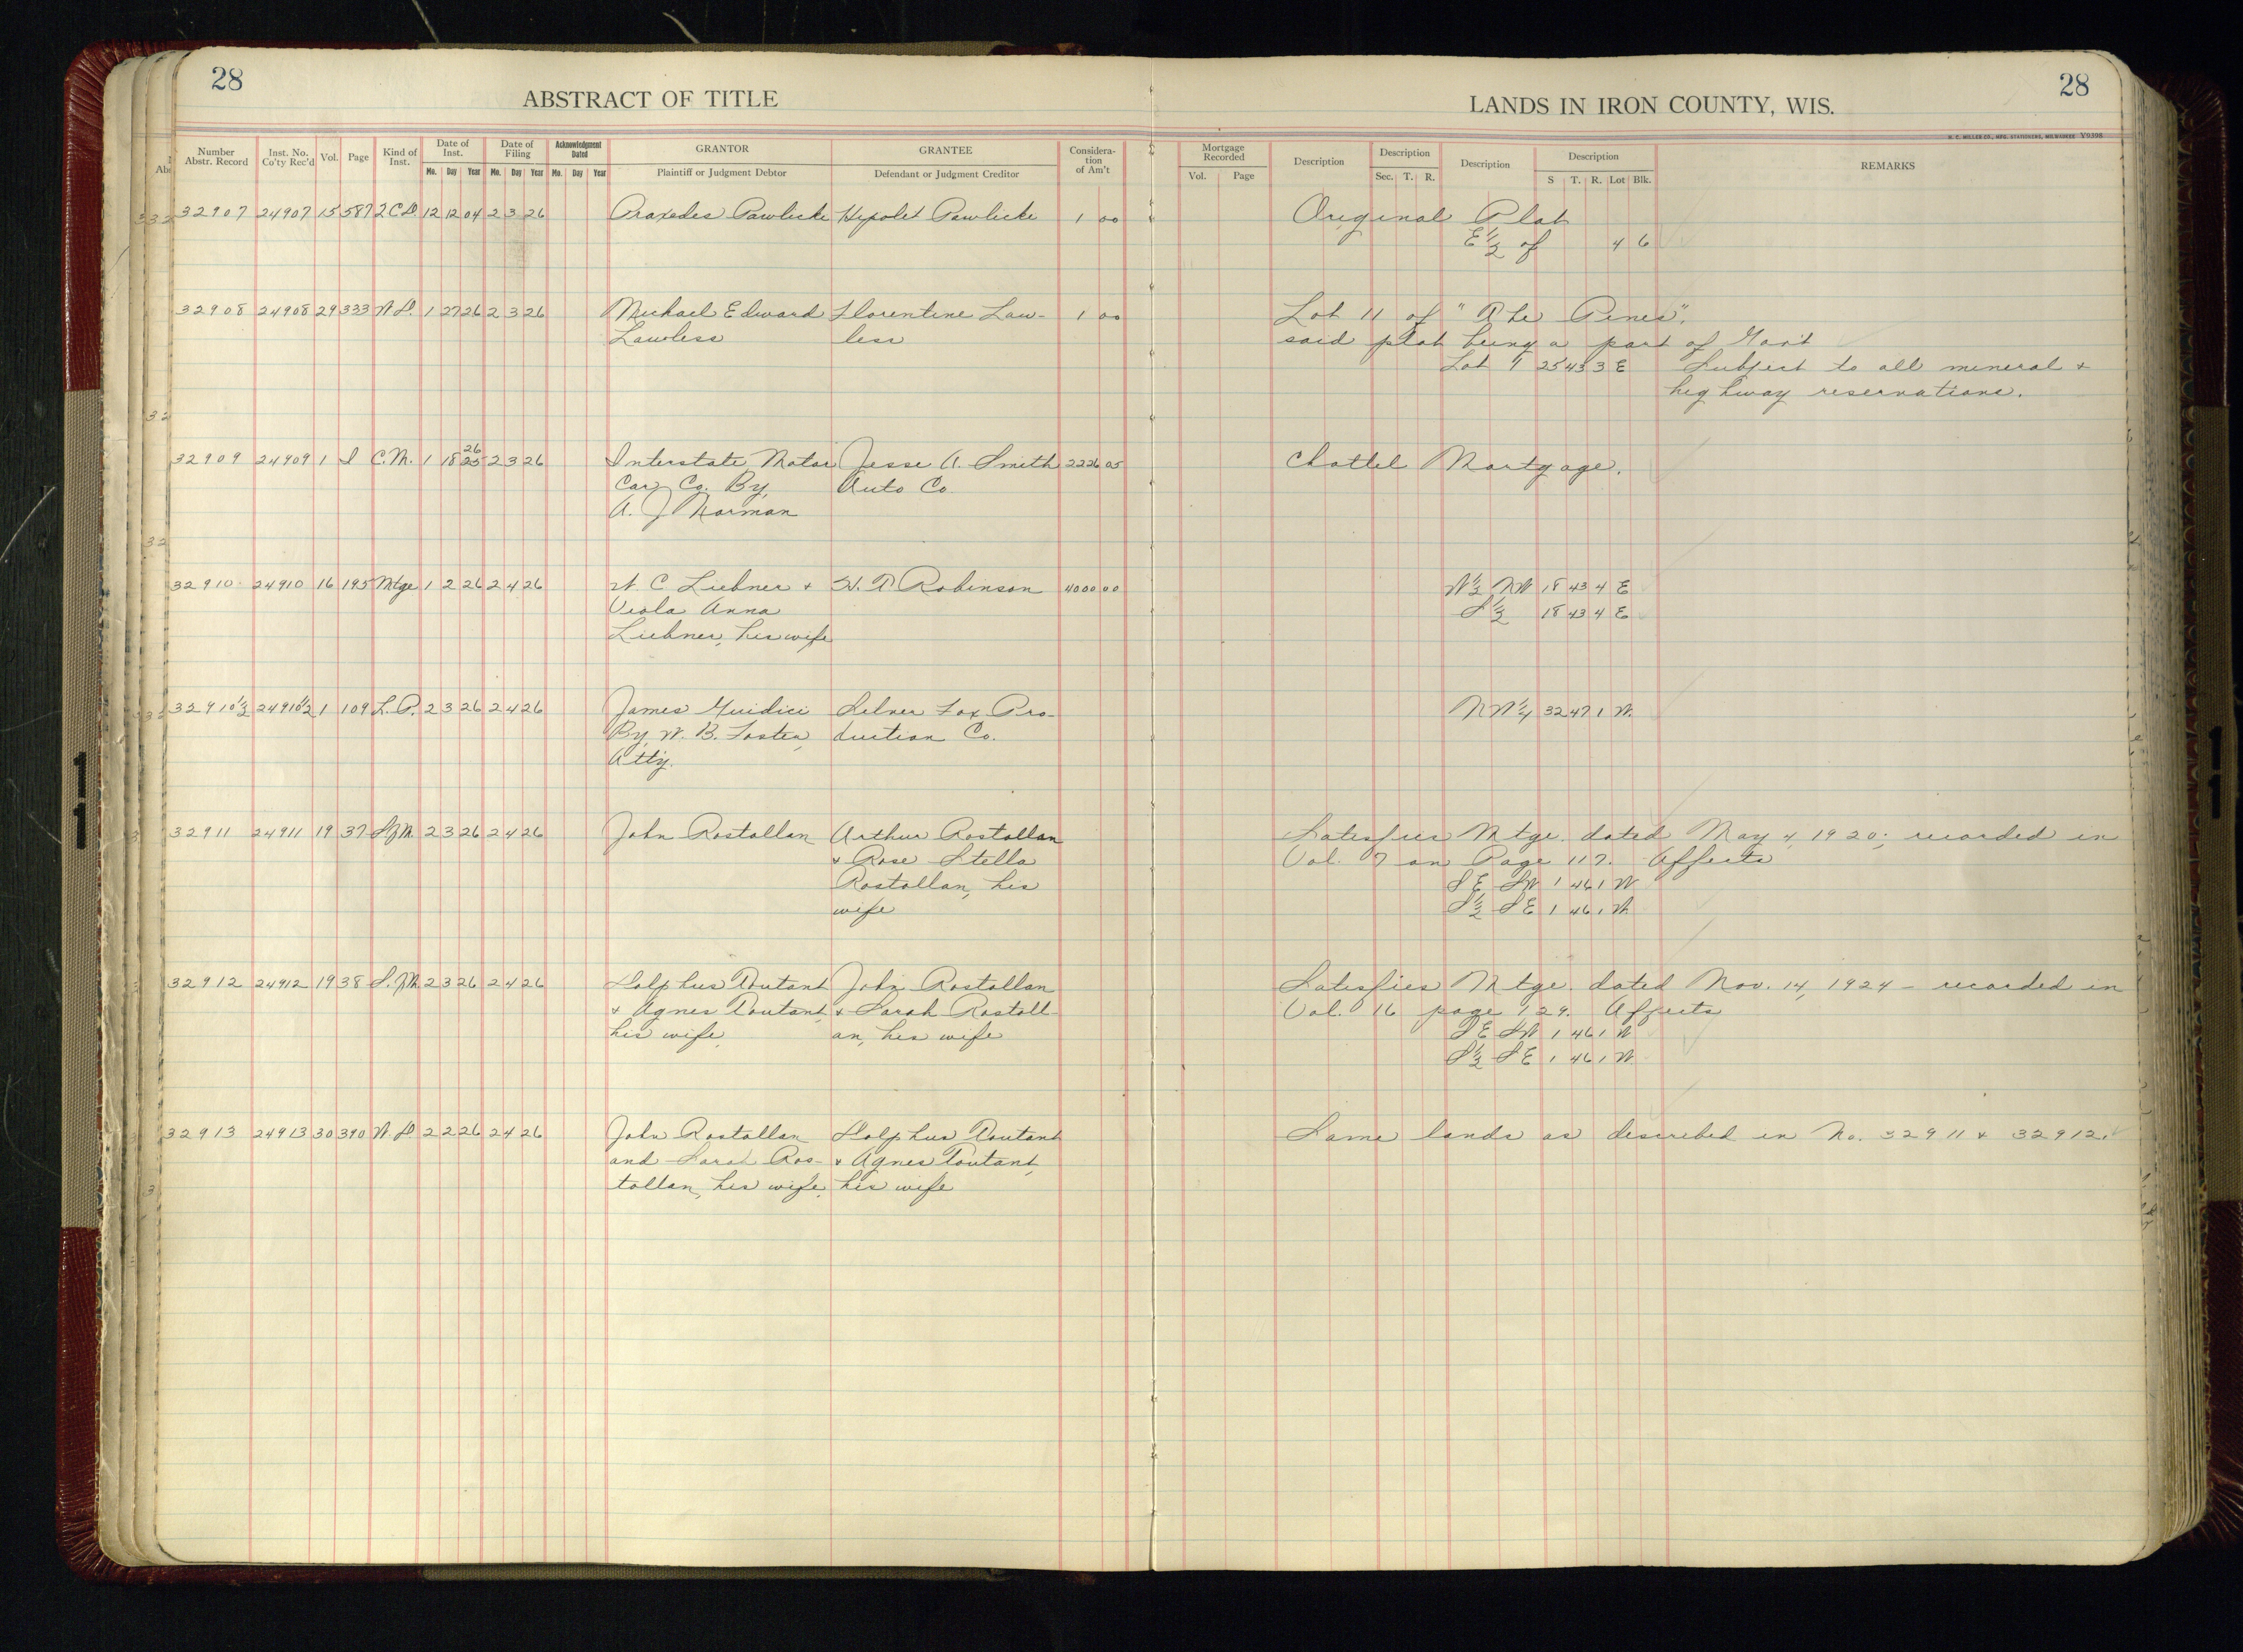 28
ABSTRACT OF TITLE
LANDS IN IRON COUNTY, WIS.
28
H. C. MILLER CO., MFG. STATIONERS, MILWAUKEE V9398
Number Abstr. Record
Inst. No. Co'ty Rec'd
Vol.
Page
Kind of Inst.
Date of Inst.
Mo. Day Year
Date of Filing
Mo. Day Year
Acknowledgment Dated
Mo. Day Year
GRANTOR
Plaintiff or Judgment Debtor
GRANTEE
Defendant or Judgment Creditor
Considera-tion of Am't
Mortgage Recorded
Vol. Page
Description
Description
Sec. T. R.
Description
Description
S T. R. Lot Blk.
REMARKS
32907 24907 15 587 2CD. 12 12 04 2 3 26 Praxedes Pawlicke Hypolet Pawlicke 1 00 Original Plat
E 1/2 of 4 6
32908 24908 29 333 W.D. 1 27 26 2 3 26 Michael Edward Florentine Law- 1 00 Lot 11 of "The Pines".
Lawless less said plat being a part of Gov't
Lot 1 25 43 3 E Subject to all mineral +
highway reservations.
32909 24909 1 I C.M. 1 18 26 25 2 3 26 Interstate Motor Jesse A. Smith 2226 05 Chattel Mortgage.
Car Co. By, Auto Co.
A. J Norman
32910 24910 16 195 Mtge 1 2 26 2 4 26 W. C Liebner + H. T Robinson 4000 00 W 1/2 NW 18 43 4 E
Viola Anna S 1/2 18 43 4 E
Liebner, his wife
32910 1/2 24910 1/2 1 109 L.P. 2 3 26 2 4 26 James Guidici Silver Fox Pro- NW 1/4 32 47 1 W.
By, W. B. Foster, duction Co.
Att'y.
32911 24911 19 37 S.M. 2 3 26 2 4 26 John Rostollan Arthur Rostollan Satisfies Mtge. dated May 4, 1920; recorded in
+ Rose Stella Vol. 7 on Page 117. Affects
Rostollan, his SE SW 1 46 1 W
wife S 1/2 SE 1 46 1 W.
32912 24912 19 38 S.M. 2 3 26 2 4 26 Dolphus Toutant John Rostollan Satisfies Mtge. dated Nov. 14, 1924 - recorded in
+ Agnes Toutant, + Sarah Rostoll- Vol. 16 page 129. Affects
his wife, an, his wife SE SW 1 46 1 W
S 1/2 SE 1 46 1 W.
32913 24913 30 390 W.D 2 2 26 2 4 26 John Rostollan Dolphus Toutant Same lands as described in No. 32911 + 32912.
and Sarah Ros- + Agnes Toutant,
tollan, his wife, his wife